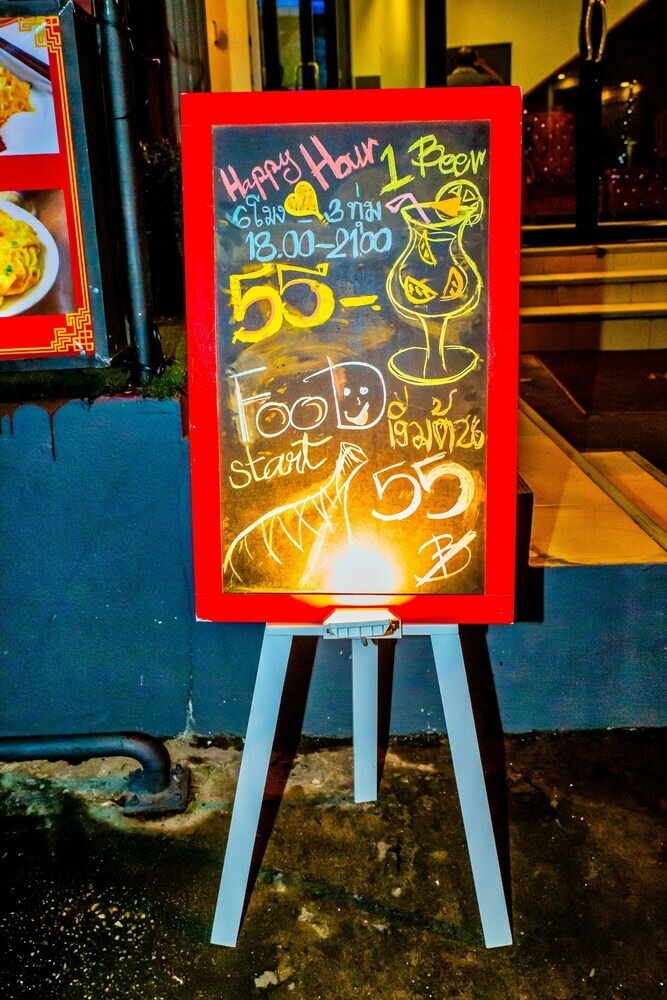 Happy Hour 1 Beer
6โมง - 3ทุ่ม
18.00-21.00
55-
FooD เริ่มต้น
start 55
฿